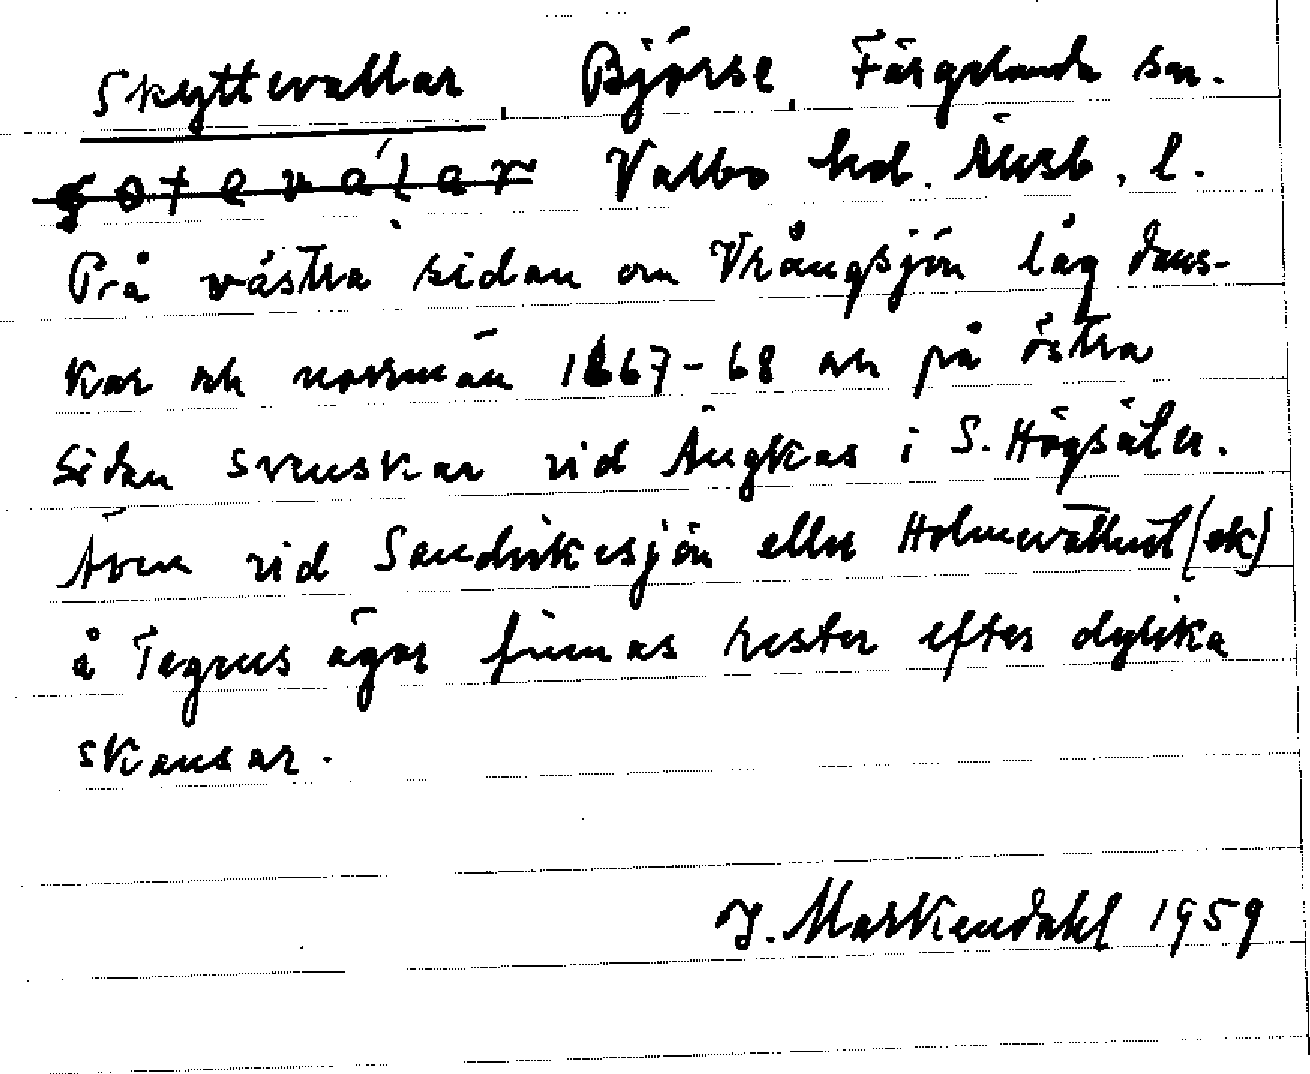 Skyttevallar, Björse, Färgelanda sn.
soteválar Valbo hd. Älvsb. l.
På västra sidan om Vrångsjön låg dans-
kar och norrmän 1667-68 och på östra
sidan svenskar vid Ängkas i S. Högsäter.
Även vid Sandvikesjön eller Holmevattnet (ek)
å Tegnes ägor finnas rester efter dylika
skansar.
J. Markendahl 1959